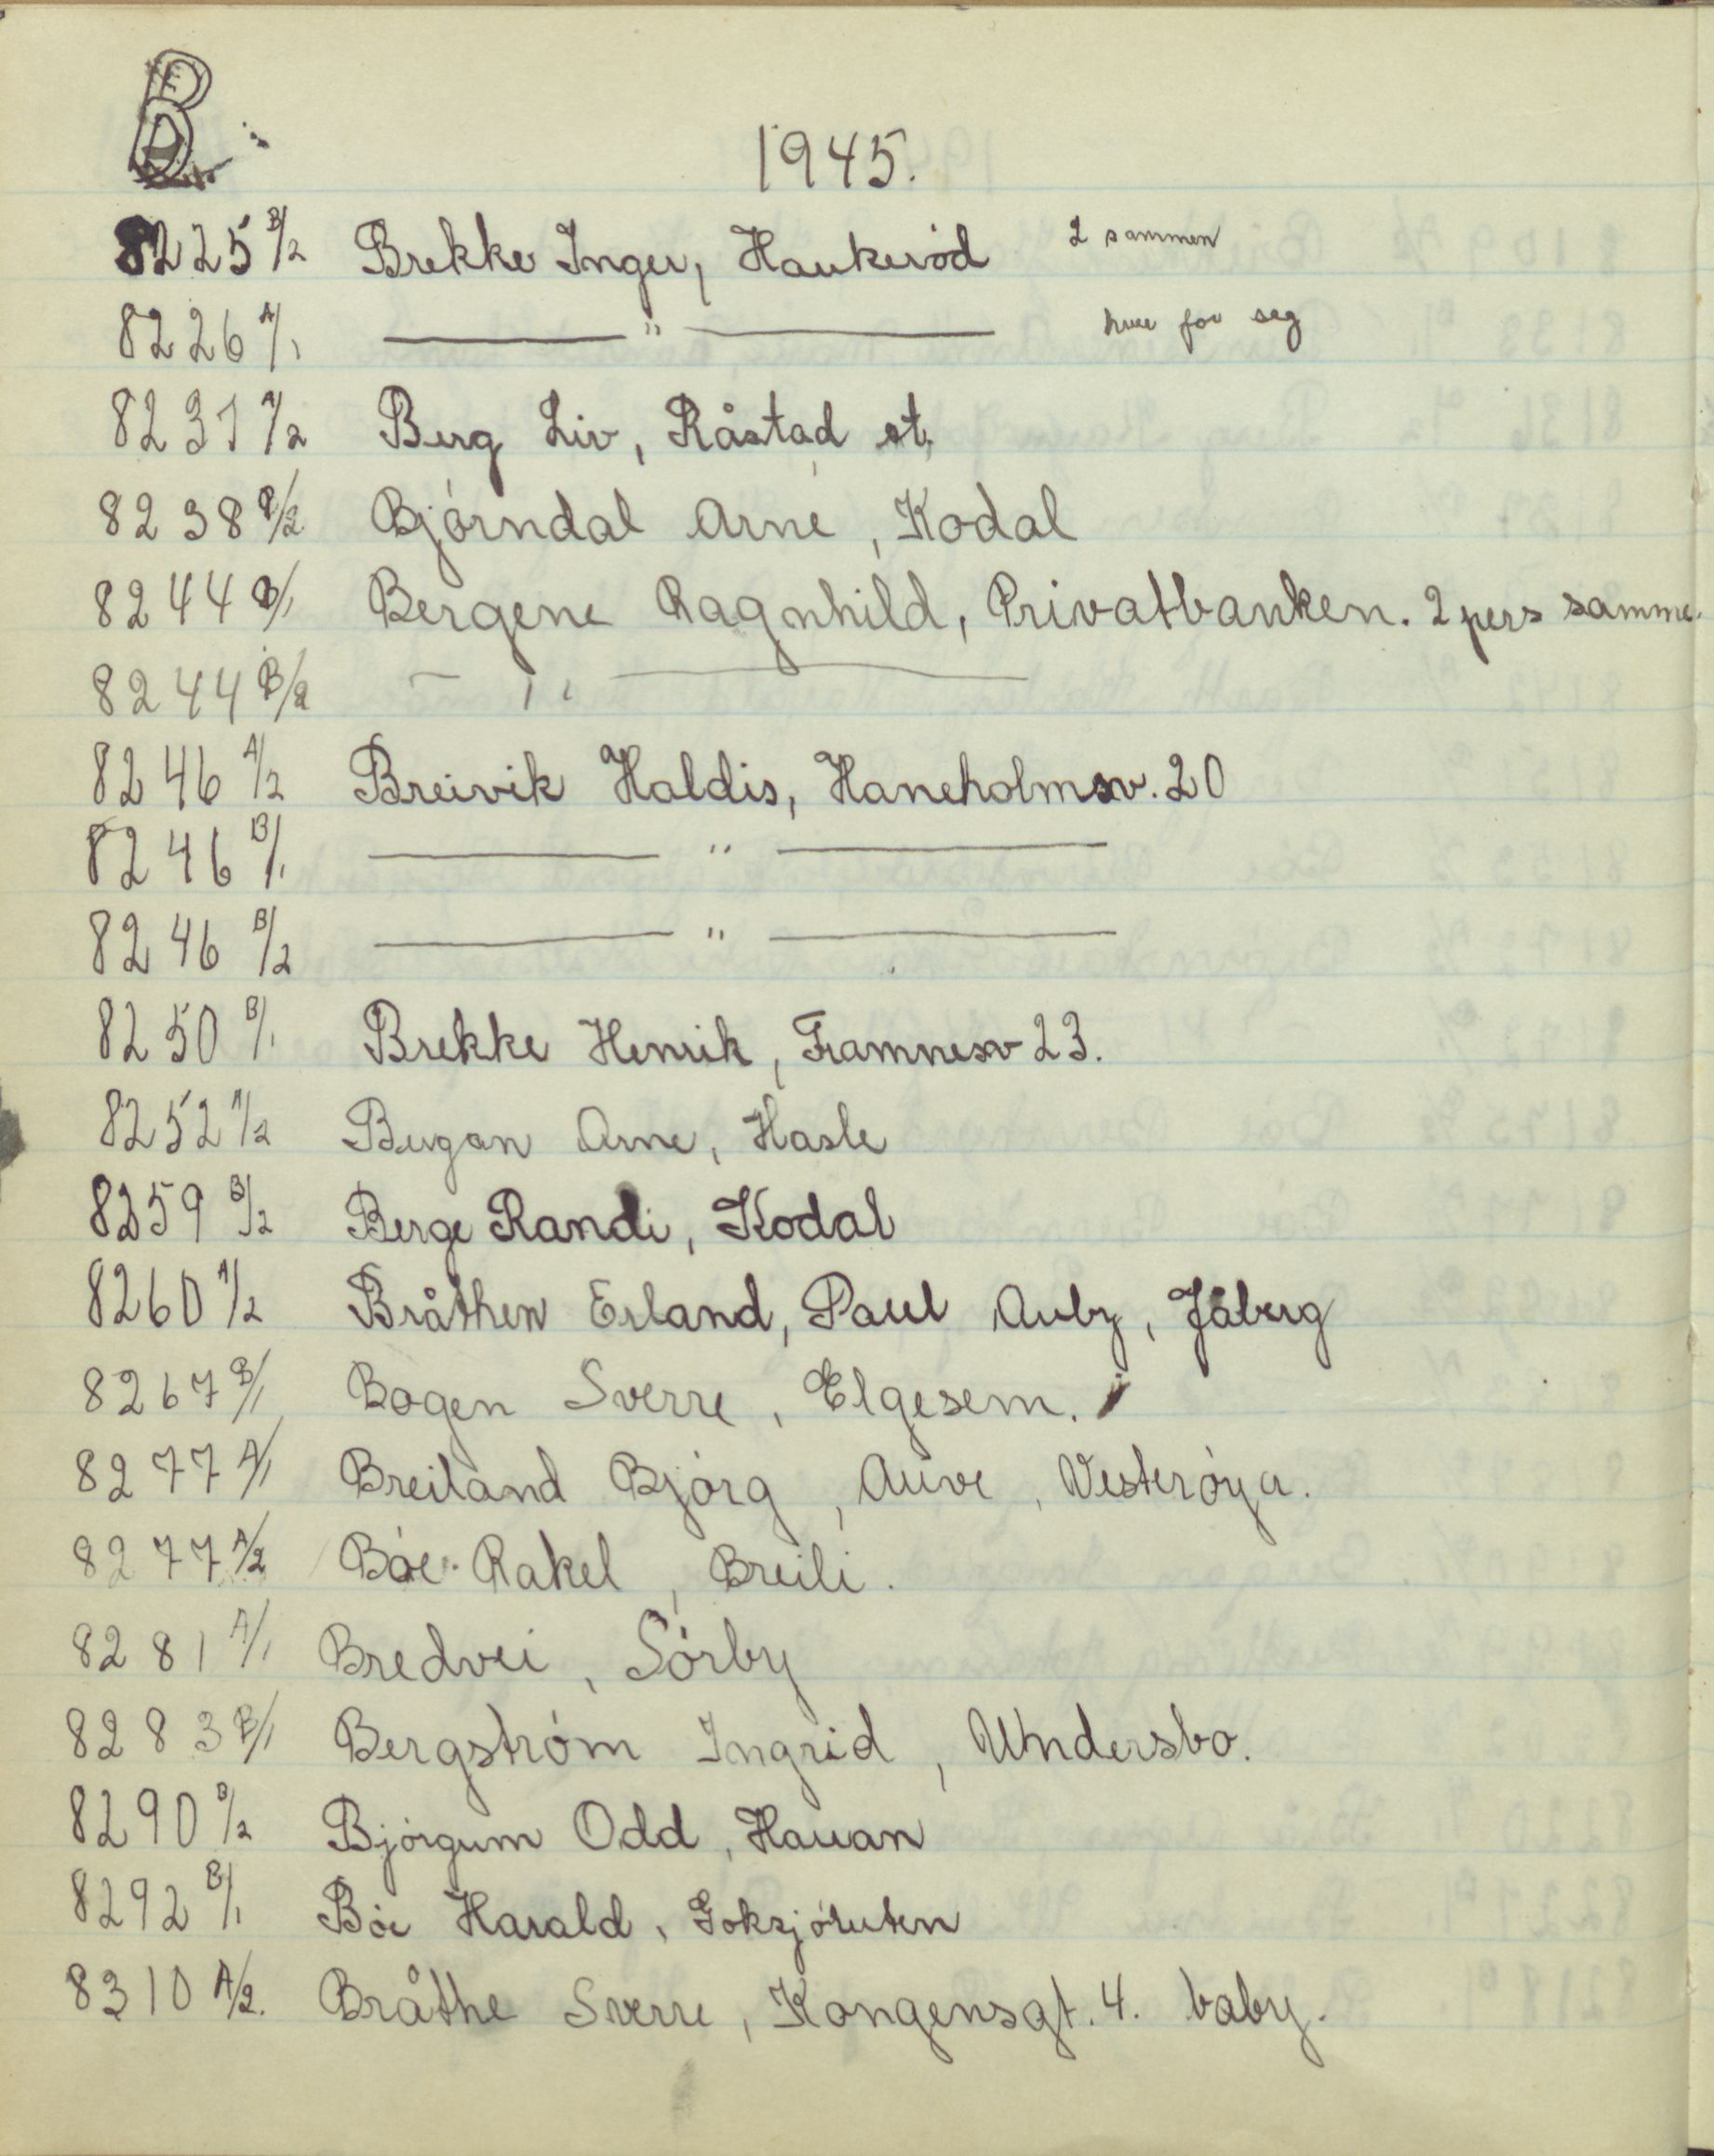 B
1945.
8225 B/2 Brekke Inger, Haukeród 2 sammen
8226 A/1 — " — hver for seg
8231 A/2 Berg Liv, Råstad st.
8238 B/2 Bjórndal Arne, Kodal
8244 B/1 Bergene Ragnhild, Privatbanken. 2 pers samme.
8244 B/2 — " —
8246 A/2 Breivik Haldis, Haneholmsv. 20
8246 B/1 — " —
8246 B/2 — " —
8250 B/1 Brekke Henrik, Framnesv 23.
8252 A/2 Bergan Arne, Hasle
8259 B/2 Berge Randi, Kodal
8260 A/2 Bråthen Erland, Paul Auby, Jåberg
8267 B/1 Bogen Sverre, Elgesem.
8277 A/1 Breiland Bjórg, Auve, Vesteróya.
8277 A/2 Bóe Rakel, Breili.
8281 A/1 Bredvei, Sórby
8283 B/1 Bergstróm Ingrid, Undersbo.
8290 B/2 Bjórgum Odd, Hauan
8292 B/1 Bóe Harald, Goksjóruten
8310 A/2. Bråthe Sverre, Kongensgt. 4. baby.